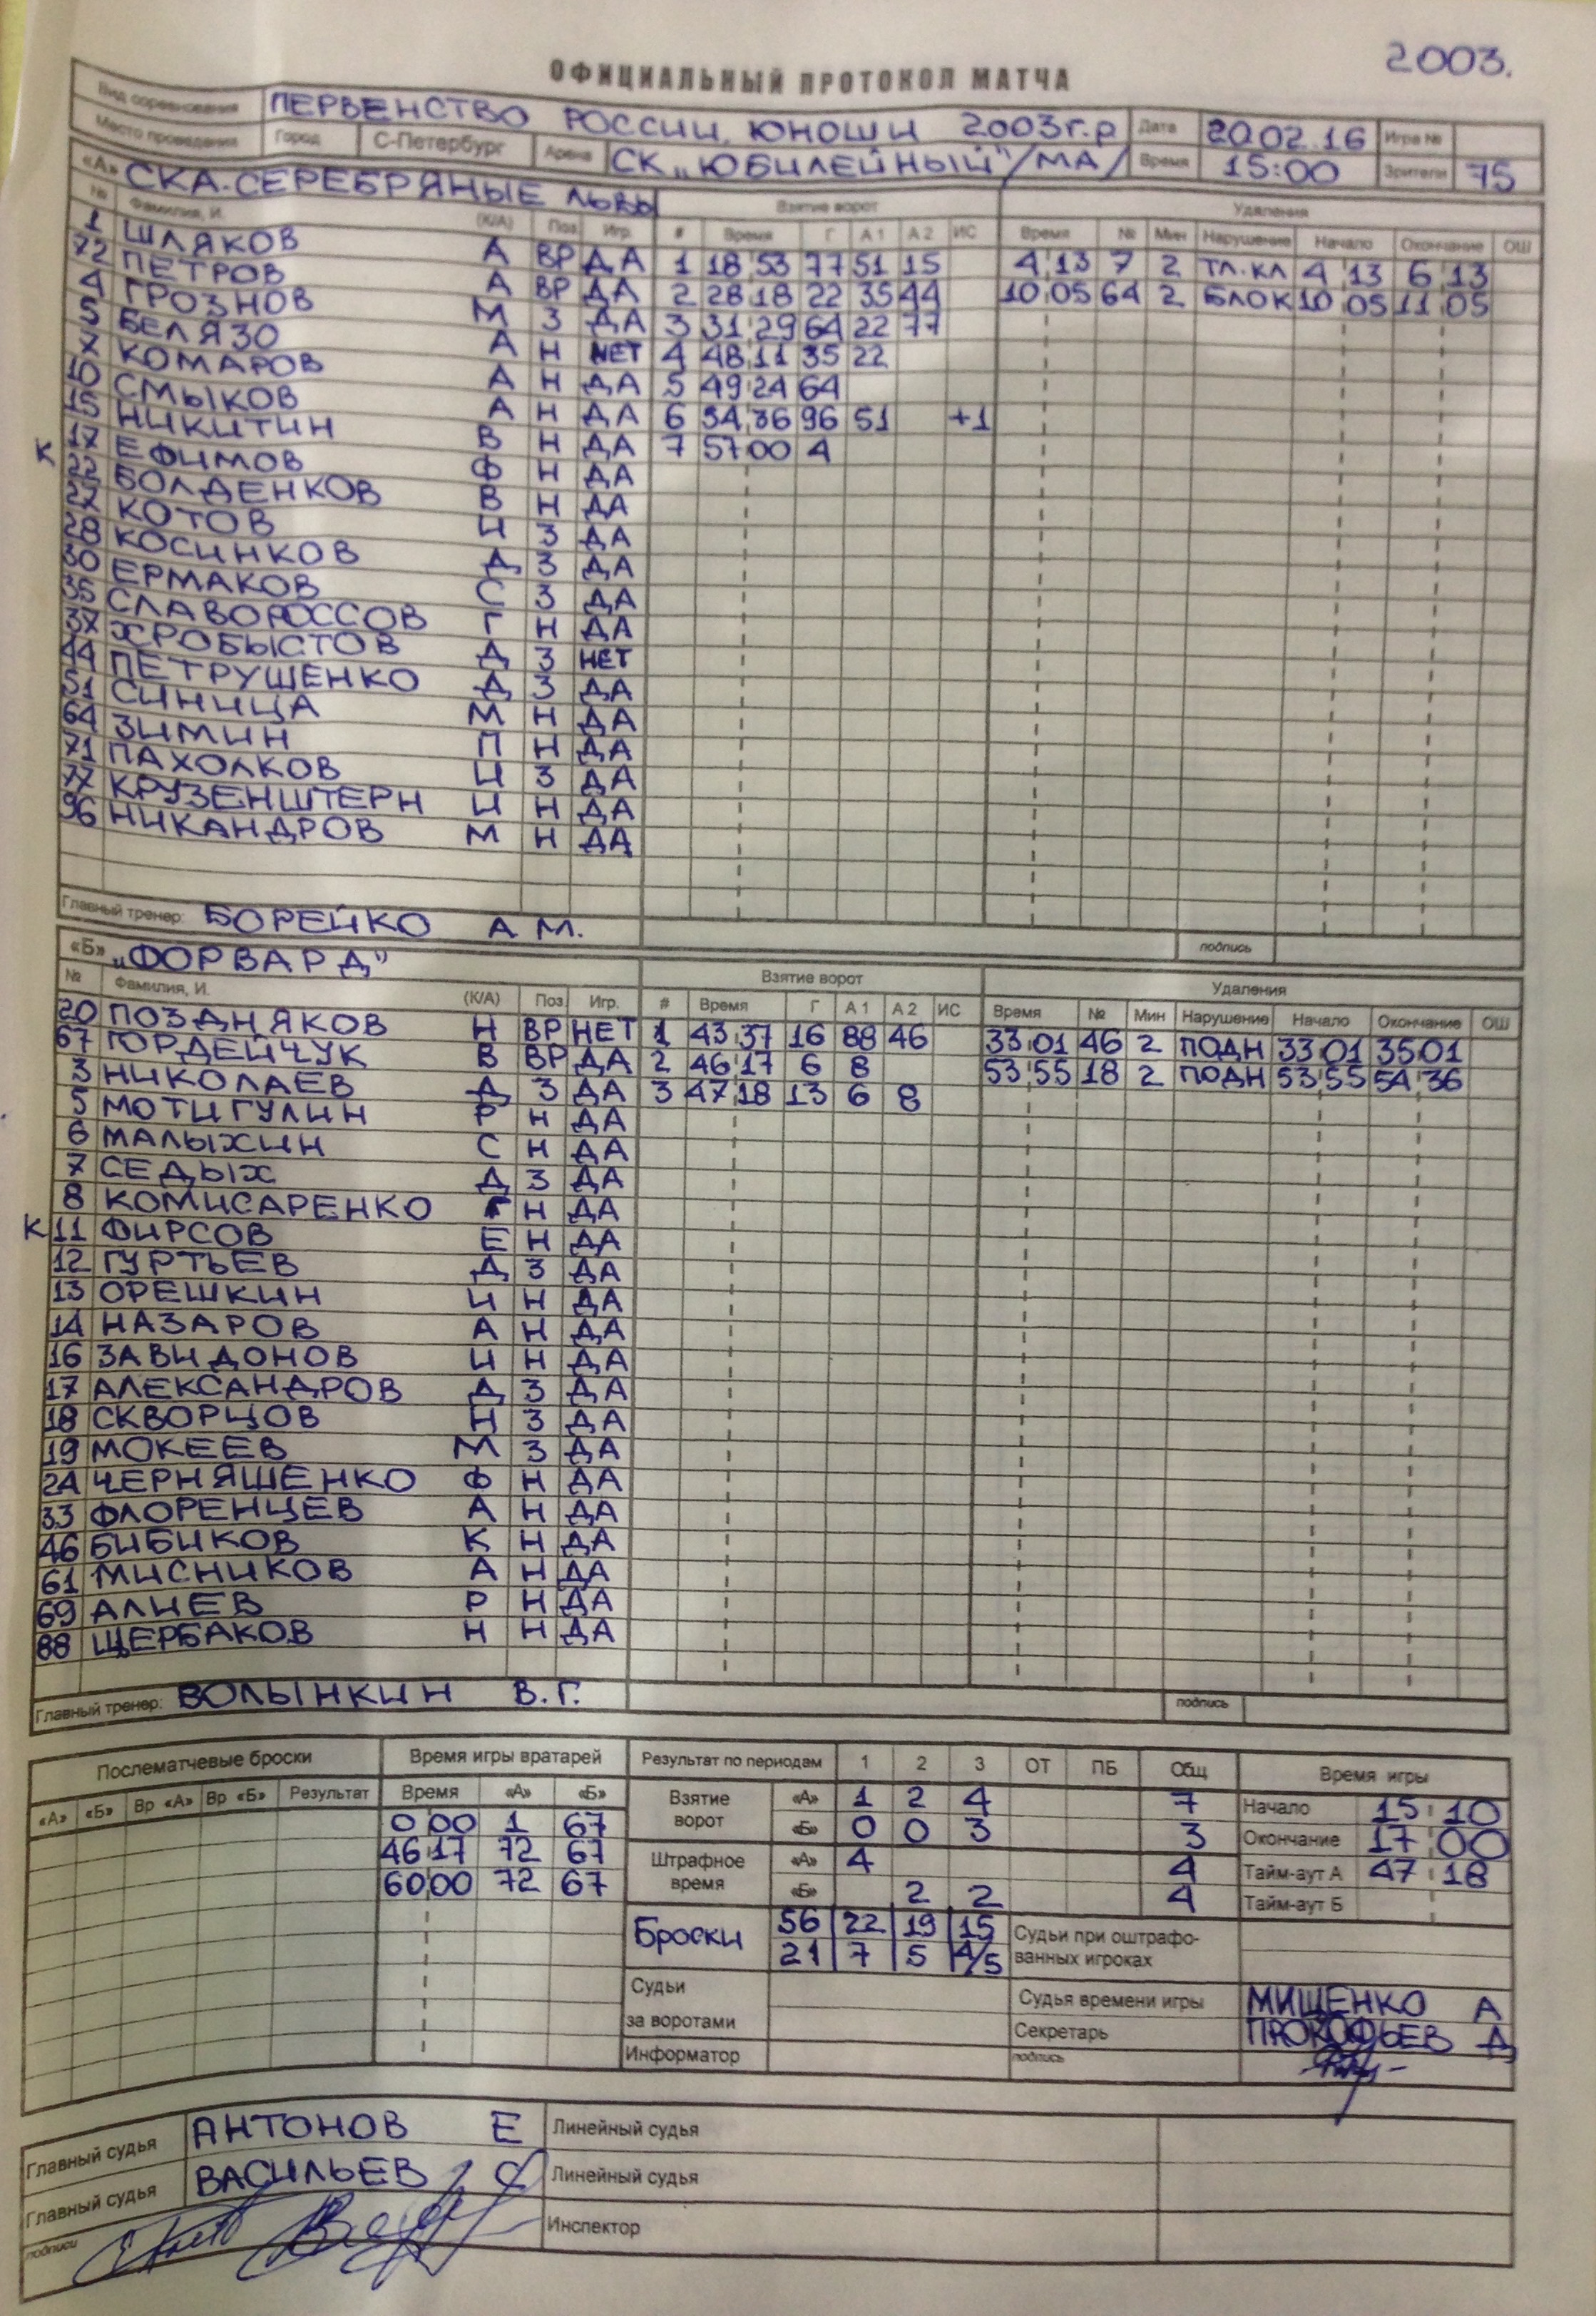 2003.
ОФИЦИАЛЬНЫЙ ПРОТОКОЛ МАТЧА
Вид соревнования ПЕРВЕНСТВО РОССИИ, ЮНОШИ 2003г.р Дата 20.02.16 Игра №
Место проведения Город С-Петербург Арена СК „ЮБИЛЕЙНЫЙ"/МА/ Время 15:00 Зрители 75
«А» СКА-СЕРЕБРЯНЫЕ ЛЬВЫ Взятие ворот Удаления
№ Фамилия, И. (К/А) Поз Игр. # Время Г А1 А2 ИС Время № Мин Нарушение Начало Окончание ОШ
1 ШЛЯКОВ А ВР ДА 1 18 53 77 51 15 4 13 7 2 ТЛ.КЛ 4 13 6 13
72 ПЕТРОВ А ВР ДА 2 28 18 22 35 44 10 05 64 2 БЛОК 10 05 11 05
4 ГРОЗНОВ М З ДА 3 31 29 64 22 77
5 БЕЛЯЗО А Н НЕТ 4 48 11 35 22
7 КОМАРОВ А Н ДА 5 49 24 64
10 СМЫКОВ А Н ДА 6 54 36 96 51 +1
15 НИКИТИН В Н ДА 7 57 00 4
К 17 ЕФИМОВ Ф Н ДА
22 БОЛДЕНКОВ В Н ДА
27 КОТОВ И З ДА
28 КОСИНКОВ Д З ДА
30 ЕРМАКОВ С З ДА
35 СЛАВОРОССОВ Г Н ДА
37 ХРОБЫСТОВ Д З НЕТ
44 ПЕТРУШЕНКО Д З ДА
51 СИНИЦА М Н ДА
64 ЗИМИН П Н ДА
71 ПАХОЛКОВ И З ДА
77 КРУЗЕНШТЕРН И Н ДА
96 НИКАНДРОВ М Н ДА
Главный тренер: БОРЕЙКО А М. подпись
«Б» „ФОРВАРД" Взятие ворот Удаления
№ Фамилия, И. (К/А) Поз Игр. # Время Г А1 А2 ИС Время № Мин Нарушение Начало Окончание ОШ
20 ПОЗДНЯКОВ Н ВР НЕТ 1 43 37 16 88 46 33 01 46 2 ПОДН 33 01 35 01
67 ГОРДЕЙЧУК В ВР ДА 2 46 17 6 8 53 55 18 2 ПОДН 53 55 54 36
3 НИКОЛАЕВ Д З ДА 3 47 18 13 6 8
5 МОТИГУЛИН Р Н ДА
6 МАЛЫХИН С Н ДА
7 СЕДЫХ Д З ДА
8 КОМИСАРЕНКО Г Н ДА
К 11 ФИРСОВ Е Н ДА
12 ГУРТЬЕВ Д З ДА
13 ОРЕШКИН И Н ДА
14 НАЗАРОВ А Н ДА
16 ЗАВИДОНОВ И Н ДА
17 АЛЕКСАНДРОВ Д З ДА
18 СКВОРЦОВ Н З ДА
19 МОКЕЕВ М З ДА
24 ЧЕРНЯШЕНКО Ф Н ДА
33 ФЛОРЕНЦЕВ А Н ДА
46 БИБИКОВ К Н ДА
61 МИСНИКОВ А Н ДА
69 АЛИЕВ Р Н ДА
88 ЩЕРБАКОВ Н Н ДА
Главный тренер: ВОЛЫНКИН В.Г. подпись
Послематчевые броски Время игры вратарей Результат по периодам 1 2 3 ОТ ПБ Общ Время игры
«А» «Б» Вр «А» Вр «Б» Результат Время «А» «Б» Взятие ворот «А» 1 2 4 7 Начало 15 10
0 00 1 67 «Б» 0 0 3 3 Окончание 17 00
46 17 72 67 Штрафное время «А» 4 4 Тайм-аут А 47 18
60 00 72 67 «Б» 2 2 4 Тайм-аут Б
Броски 56 22 19 15 Судьи при оштрафо-
21 7 5 4/5 ванных игроках
Судьи Судья времени игры МИЩЕНКО А
за воротами Секретарь ПРОКОФЬЕВ Д
Информатор подпись
Главный судья АНТОНОВ Е Линейный судья
Главный судья ВАСИЛЬЕВ С Линейный судья
подписи Инспектор